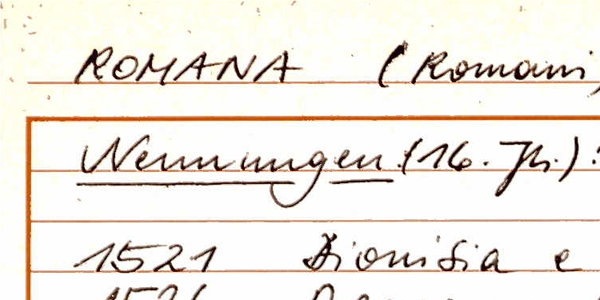 ROMANA (Romani,
Nennungen (16. Jh.):
1521 Dionisia e